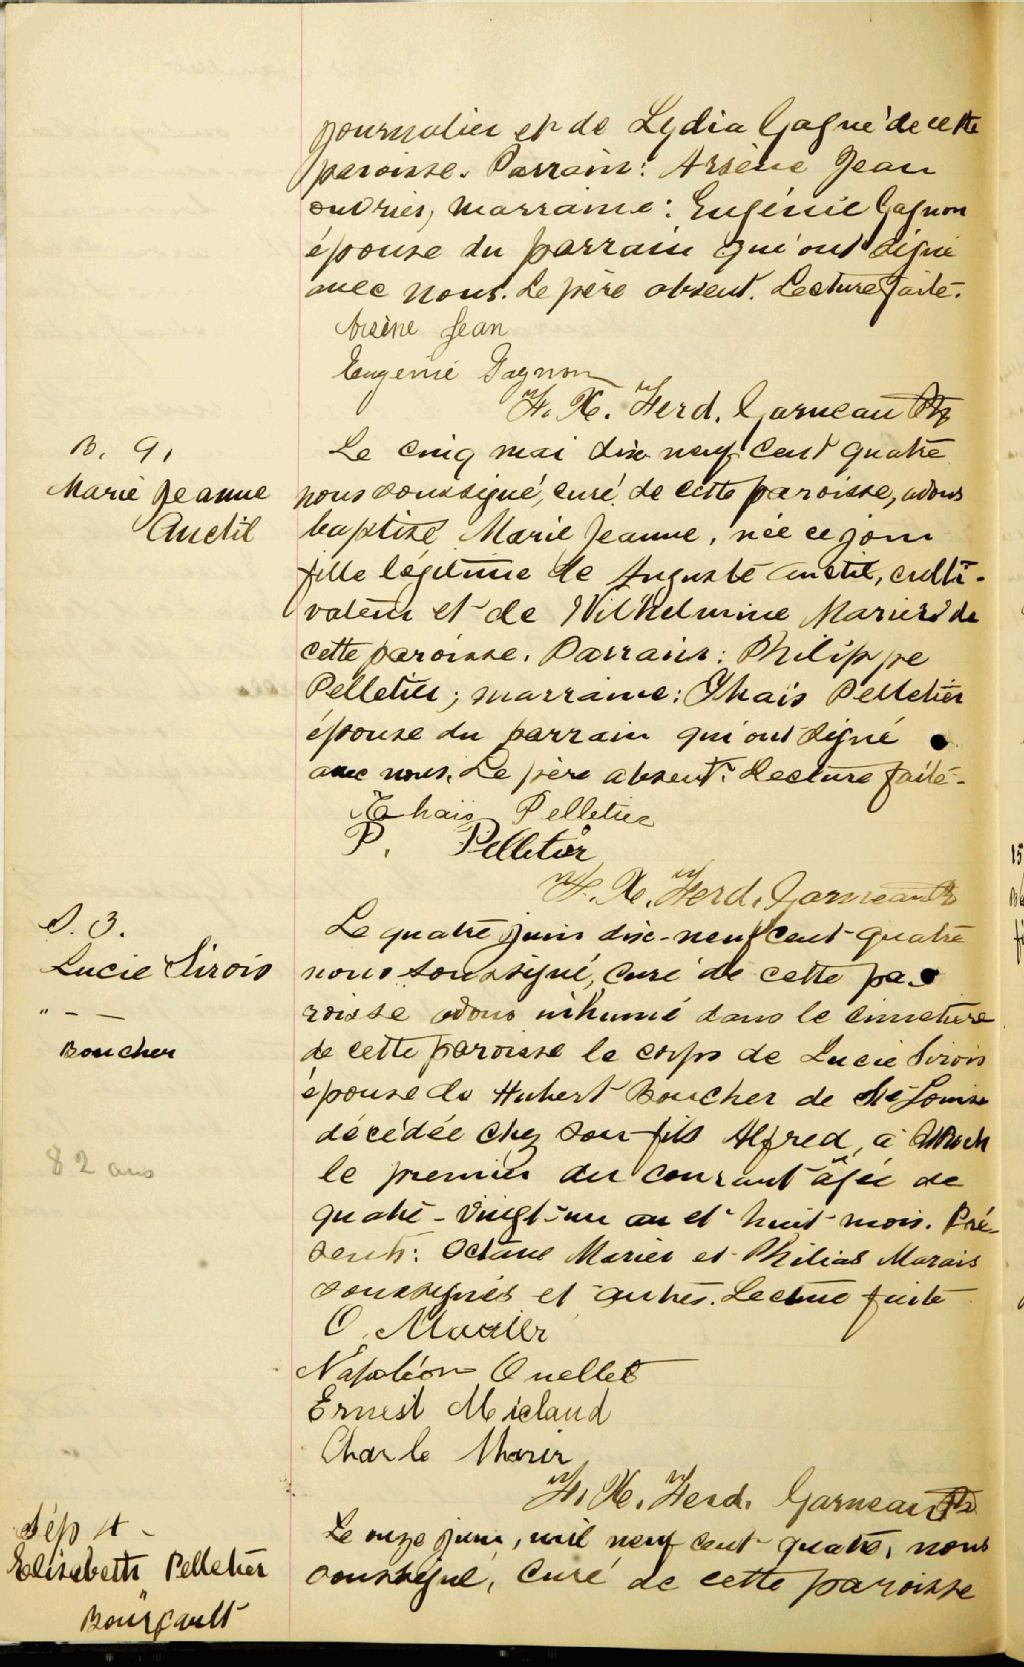 journalier et de Lydia Gagné de cette
paroisse. Parrain: Arsène Jean
ouvrier, marraine: Eugénie Gagnon
épouse du parrain qui ont signé
avec nous. Le père absent. Lecture faite.
Arsène Jean
Eugenie Gagnon
F. X. Ferd. Garneau Ptr
B. 9,
Marie Jeanne
Anctil
Le cinq mai dix neuf cent quatre
nous soussigné, curé de cette paroisse, avons
baptisé Marie Jeanne, née ce jour
fille légitime de Auguste Anctil, culti-
vateur et de Wilhelmine Marier de
cette paroisse. Parrain: Philippe
Pelletier; marraine: Thaïs Pelletier
épouse du parrain qui ont signé
avec nous. Le père absent. Lecture faite.
Thaïs Pelletier
P. Pelletier
F. X. Ferd. Garneau Ptr
S. 3.
Lucie Sirois
" - -
Boucher
82 ans
Le quatre juin dix-neuf cent quatre
nous soussigné, curé de cette pa-
roisse avons inhumé dans le cimetière
de cette paroisse le corps de Lucie Sirois
épouse de Hubert Boucher de Ste Louise
décédée chez son fils Alfred, à
le premier du courant âgée de
quatre-vingt-un an et huit mois. Pré-
sents: Octave Marier et Philias Marais
soussignés et autres. Lecture faite
O. Marier
Napoléon Ouellet
Ernest Miclaud
Charle
F. X. Ferd. Garneau Ptr
Sép 4 -
Elisabeth Pelletier
"
Bourgault
Le onze juin, mil neuf cent quatre, nous
soussigné, curé de cette paroisse
15